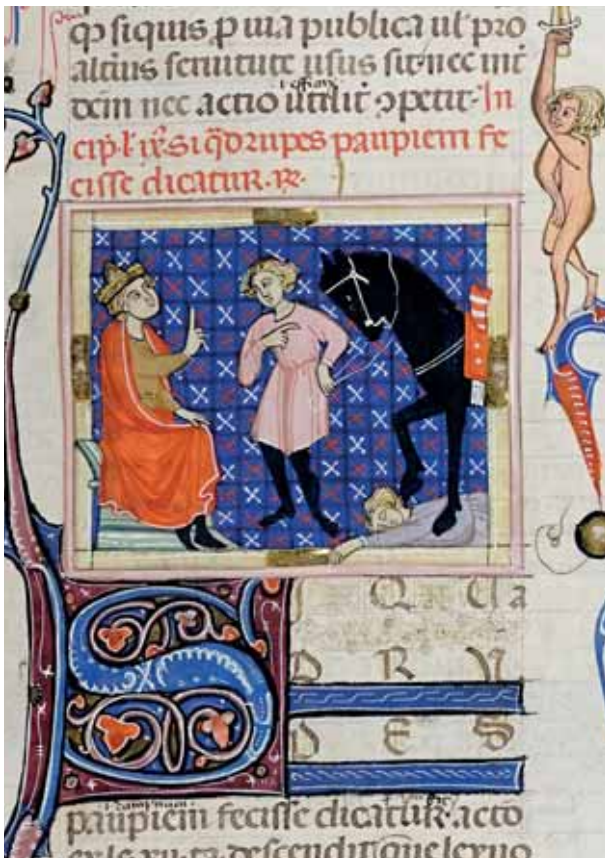 qp siquis p uia publica ul pro
altius seruitute usus sit nec int
dem nec actio utilit ɔpetit. In
cip. l. ix. Si q̄drupes paupiem fe
cisse dicatur. 
S I Q U a
D R U
P E S
paupiem fecisse dicatur. acto
ex le. xii. ta. descendit que lex uo